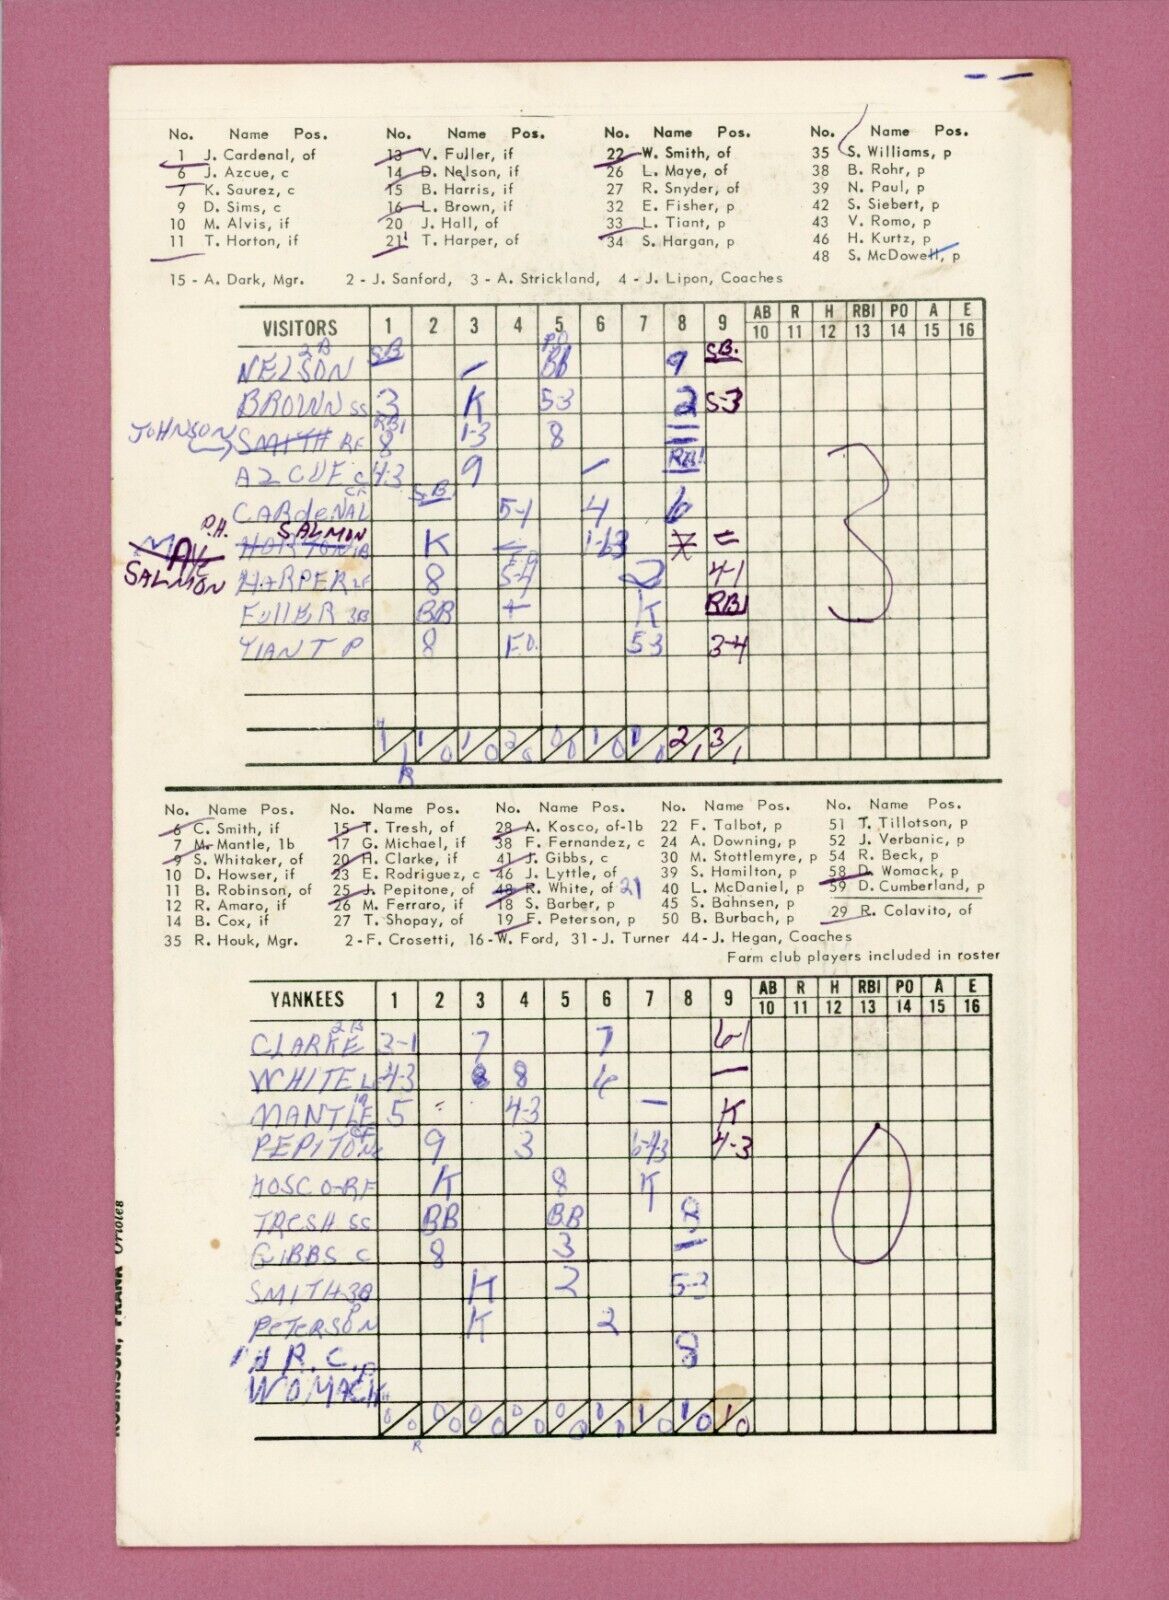 No. Name Pos. No. Name Pos. No. Name Pos. No. Name Pos.
1 J. Cardenal, of 13 V. Fuller, if 22 W. Smith, of 35 S. Williams, p
6 J. Azcue, c 14 D. Nelson, if 26 L. Maye, of 38 B. Rohr, p
7 K. Saurez, c 15 B. Harris, if 27 R. Snyder, of 39 N. Paul, p
9 D. Sims, c 16 L. Brown, if 32 E. Fisher, p 42 S. Siebert, p
10 M. Alvis, if 20 J. Hall, of 33 L. Tiant, p 43 V. Romo, p
11 T. Horton, if 21 T. Harper, of 34 S. Hargan, p 46 H. Kurtz, p
48 S. McDowell, p
15 - A. Dark, Mgr. 2 - J. Sanford, 3 - A. Strickland, 4 - J. Lipon, Coaches
VISITORS 1 2 3 4 5 6 7 8 9 AB 10 R 11 H 12 RBI 13 PO 14 A 15 E 16
NELSON 2B SB BB 9 S.B.
BROWN SS 3 K 5-3 2 5-3
JOHNSON SMITH RF RBI 8 1-3 8
AZCUE C 4-3 9 RBI
CARDENAL CF S.B. 5-1 4 6
P.H. SALMON HORTON 1B K 1-63
SALMON HARPER LF 8 5-4 2 4-1
FULLER 3B BB K RBI
TIANT P 8 F.O. 5-3 3-4
3
No. Name Pos. No. Name Pos. No. Name Pos. No. Name Pos. No. Name Pos.
6 C. Smith, if 15 T. Tresh, of 28 A. Kosco, of-1b 22 F. Talbot, p 51 T. Tillotson, p
7 M. Mantle, 1b 17 G. Michael, if 38 F. Fernandez, c 24 A. Downing, p 52 J. Verbanic, p
9 S. Whitaker, of 20 H. Clarke, if 41 J. Gibbs, c 30 M. Stottlemyre, p 54 R. Beck, p
10 D. Howser, if 23 E. Rodriguez, c 46 J. Lyttle, of 39 S. Hamilton, p 58 D. Womack, p
11 B. Robinson, of 25 J. Pepitone, of 48 R. White, of 21 40 L. McDaniel, p 59 D. Cumberland, p
12 R. Amaro, if 26 M. Ferraro, if 18 S. Barber, p 45 S. Bahnsen, p
14 B. Cox, if 27 T. Shopay, of 19 F. Peterson, p 50 B. Burbach, p 29 R. Colavito, of
35 R. Houk, Mgr. 2 - F. Crosetti, 16 - W. Ford, 31 - J. Turner 44 - J. Hegan, Coaches
Farm club players included in roster
YANKEES 1 2 3 4 5 6 7 8 9 AB 10 R 11 H 12 RBI 13 PO 14 A 15 E 16
CLARKE 2B 3-1 7 7 6-1
WHITE LF 4-3 8 8 6
MANTLE 5 4-3 K
PEPITONE CF 9 3 6-4-3 4-3
KOSCO-RF K 8 K
TRESH SS BB BB 8
GIBBS C 8 3
SMITH 3B K 2 5-3
PETERSON P K 2
R.C. 8
WOMACK P
0
ROBINSON, FRANK Orioles